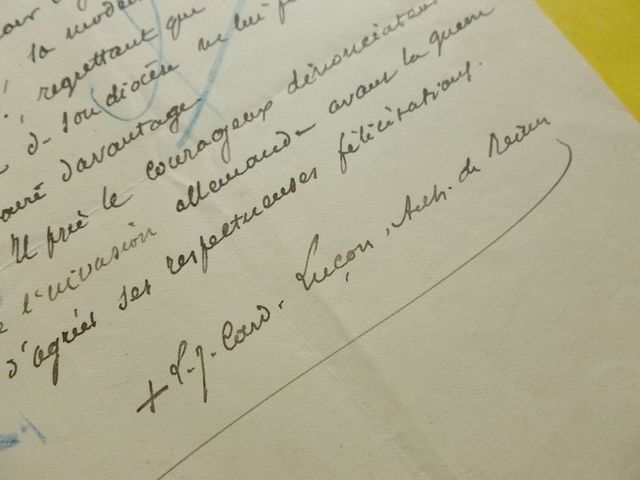 sa modeste
regrettant que
de son diocèse ne lui per
davantage.
Il prie le courageux dénonciateur
de l'invasion allemande avant la guerre
d'agréer ses respectueuses félicitations.
+ L. J. Card. Luçon, Arch. de Reims